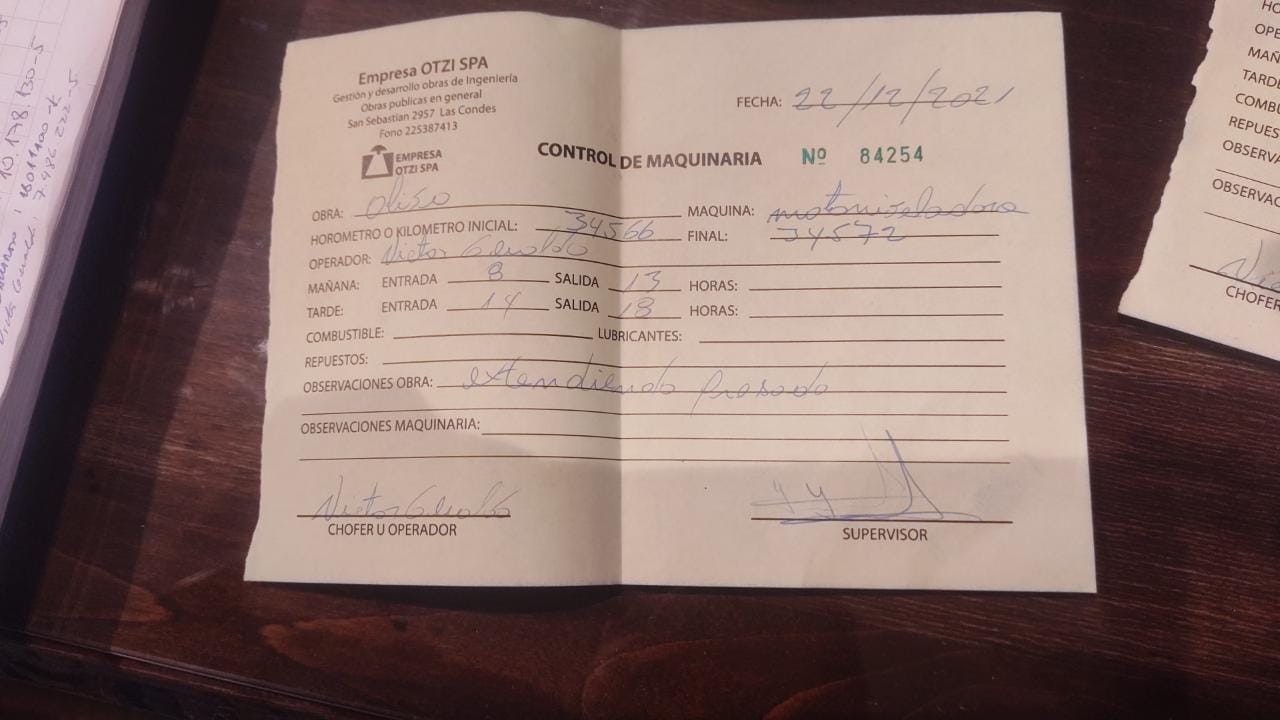 Empresa OTZI SPA
Gestión y desarrollo obras de Ingeniería
Obras publicas en general
San Sebastian 2957 Las Condes
Fono 225387413
EMPRESA
OTZI SPA
FECHA: 22/12/2021
CONTROL DE MAQUINARIA Nº 84254
OBRA: MAQUINA: motoniveladora
HOROMETRO O KILOMETRO INICIAL: 34566 FINAL: 34572
OPERADOR: Victor
MAÑANA: ENTRADA 8 SALIDA 13 HORAS:
TARDE: ENTRADA 14 SALIDA 18 HORAS:
COMBUSTIBLE: LUBRICANTES:
REPUESTOS:
OBSERVACIONES OBRA: extendiendo
OBSERVACIONES MAQUINARIA:
Victor
CHOFER U OPERADOR
SUPERVISOR
10.178.130-5
7.986.222-5
HO
OPE
MAÑ
TARDE
COMBU
REPUES
OBSERVA
OBSERVAC
CHOFER